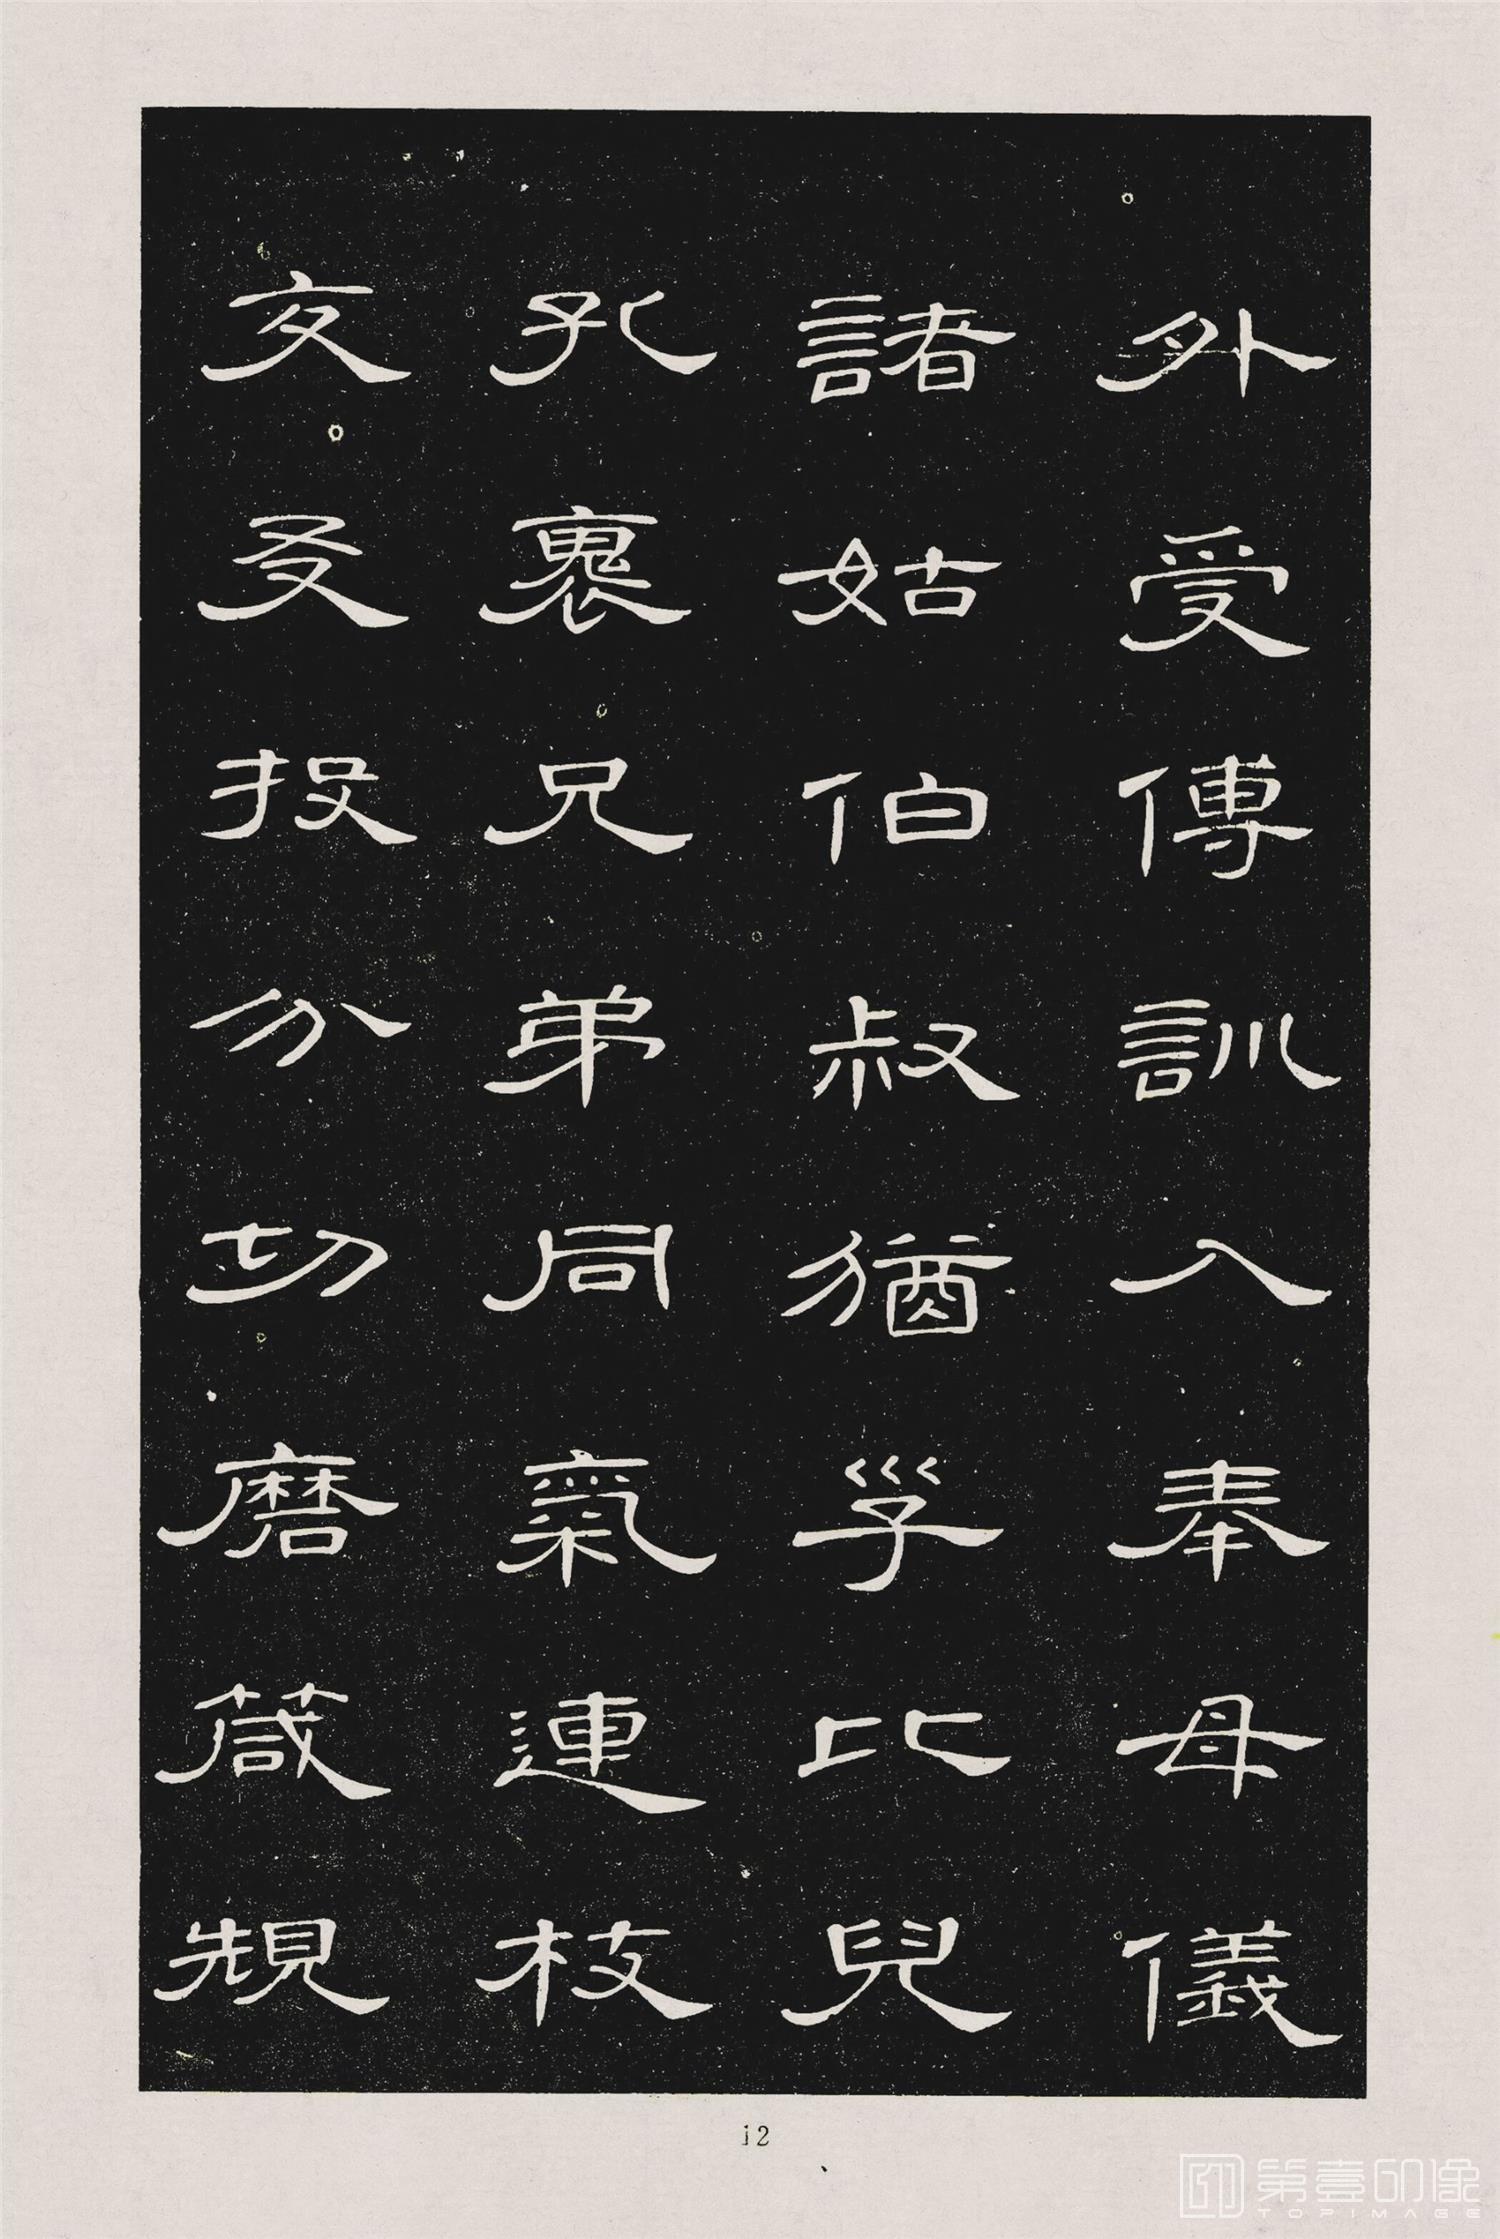 外受傅訓入奉母儀
諸姑伯叔猶子比兒
孔懷兄弟同氣連枝
交友投分切磨箴規
12
第壹印像
TOPIMAGE